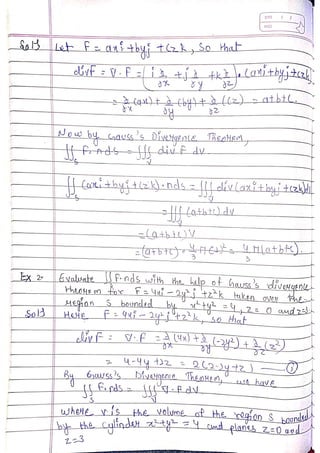 Sol) Let F = axi + byj + czk, so that
div F = ∇·F = (i ∂/∂x + j ∂/∂y + k ∂/∂z) · (axi + byj + czk)
= ∂/∂x (ax) + ∂/∂y (by) + ∂/∂z (cz) = a+b+c.
Now by Gauss's Divergence Theorem,
∬_S F.nds = ∭_V div F dv
∬_S (axi + byj + czk).nds = ∭_V div (axi + byj + czk) dv
= ∭_V (a+b+c) dv
= (a+b+c) V
= (a+b+c) · 4/3 π (1)³ = 4/3 π (a+b+c).
Ex 2 Evaluate ∬_S F.nds with the help of Gauss's divergence
theorem for F = 4xi - 2y²j + z²k taken over the
region S bounded by x²+y² = 4, z = 0 and z=3
Sol) Here F = 4xi - 2y²j + z²k, so that
div F = ∇·F = ∂/∂x (4x) + ∂/∂y (-2y²) + ∂/∂z (z²)
= 4-4y+2z = 2(2-2y+z) —①
By Gauss's Divergence Theorem, we have
∬_S F.nds = ∭_V ∇·F dv
where V is the volume of the region S bounded
by the cylinder x²+y² = 4 and planes z=0 and
z=3